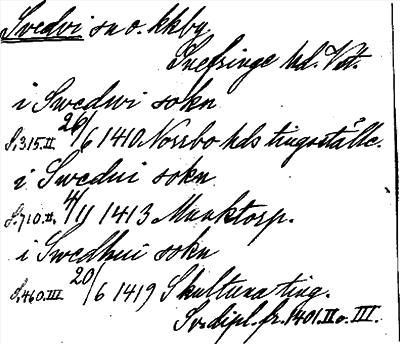 Svedvi sn o. kkby
Snefringe hd. Vstm.
i Swedwi sokn
S. 315. II 26/6 1410 Norrbo hds tingsställe.
i Swedui sokn
S. 710. II. 4/11 1413 Munktorp.
i Swedhui sokn
S. 460. III 20/6 1419 Skultuna ting.
Sv. dipl. fr. 1401. II o. III.